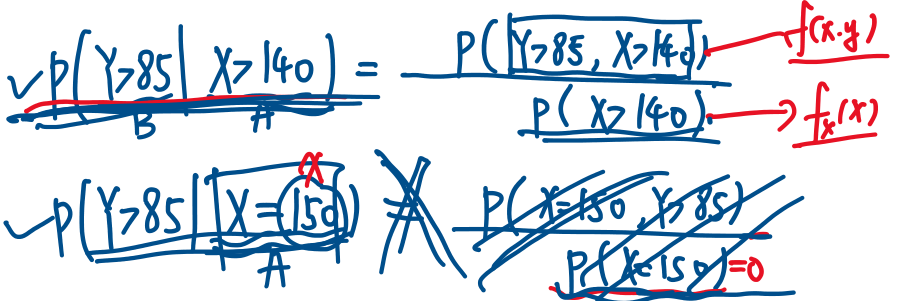 ✓ P(Y>85 | X>140) = P(Y>85, X>140) / P(X>140)
f(x.y)
B A
f_X(X)
X
✓ P(Y>85 | X=150) ≠ P(X=150, Y>85) / P(X=150) = 0
A